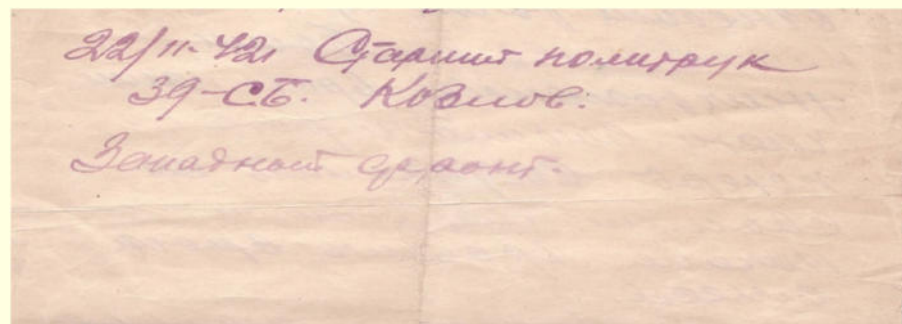 22/II-42г Старший политрук
39-СБ. Козлов.
Западной фронт.